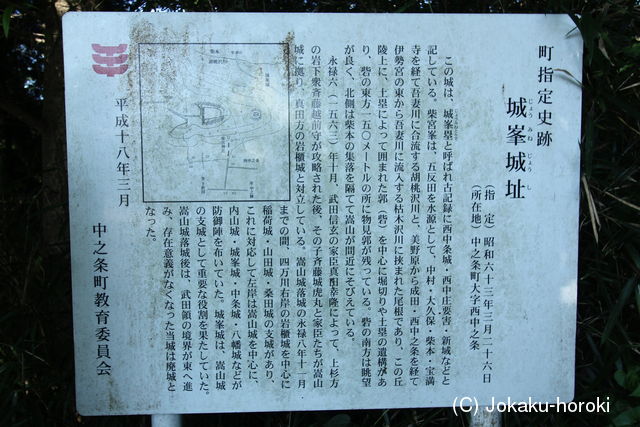 町指定史跡
城峯城址
じょう みね じょう し
(指 定) 昭和六十三年三月二十六日
(所在地) 中之条町大字西中之条
この城は、城峯塁と呼ばれ古記録に西中条城・西中庄要害・新城などと
記している。柴宮峯は、五反田を水源として、中村・大久保・柴本・宝満
寺を経て吾妻川に合流する胡桃沢川と、美野原から成田・西中之条を経て
伊勢宮の東から吾妻川に流入する枯木沢川に挟まれた尾根であり、この丘
陵上に、土塁によって囲まれた郭(砦)を中心に堀切りや土塁の遺構があ
り、砦の東方一五〇メートルの所に物見郭が残っている。砦の南方は眺望
が良く、北側は柴本の集落を隔てて嵩山が間近にそびえている。
永禄六(一五六三)年十月、武田信玄の家臣真田幸隆によって、上杉方
の岩下衆斉藤越前守が攻略された後、その子斉藤城虎丸と家臣たちが嵩山
城に拠り、真田方の岩櫃城と対立している。嵩山城落城の永禄八年十一月
までの間、四万川右岸の岩櫃城を中心に
稲荷城・山田城・桑田城の支城があり、
これに対応して左岸は嵩山城を中心に、
内山城・城峯城・中条城・八幡城などが
防御陣を布いていた。城峯城は、嵩山城
の支城として重要な役割を果たしていた。
嵩山城落城後は、武田領の境界が東へ進
み、存在意義がなくなった当城は廃城と
なった。
平成十八年三月
中之条町教育委員会
(C) Jokaku-horoki